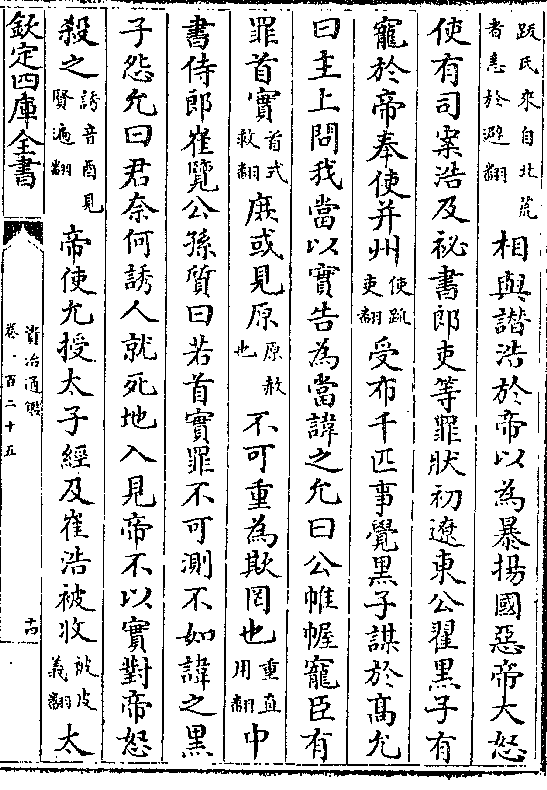 跋氏來自北荒
者恚於避翻
相與譖浩於帝以為暴揚國惡帝大怒
使有司案浩及祕書郎吏等罪狀初遼東公翟黑子有
寵於帝奉使并州
使疏
吏翻
受布千匹事覺黑子謀於高允
曰主上問我當以實告為當諱之允曰公帷幄寵臣有
罪首實
首式
救翻
庶或見原
原赦
也
不可重為欺罔也
重直
用翻
中
書侍郎崔覽公孫質曰若首實罪不可測不如諱之黑
子怨允曰君奈何誘人就死地入見帝不以實對帝怒
殺之
誘音酉見
賢遍翻
帝使允授太子經及崔浩被收
被皮
義翻
太
欽定四庫全書
資治通鑑
卷一百二十五
十四